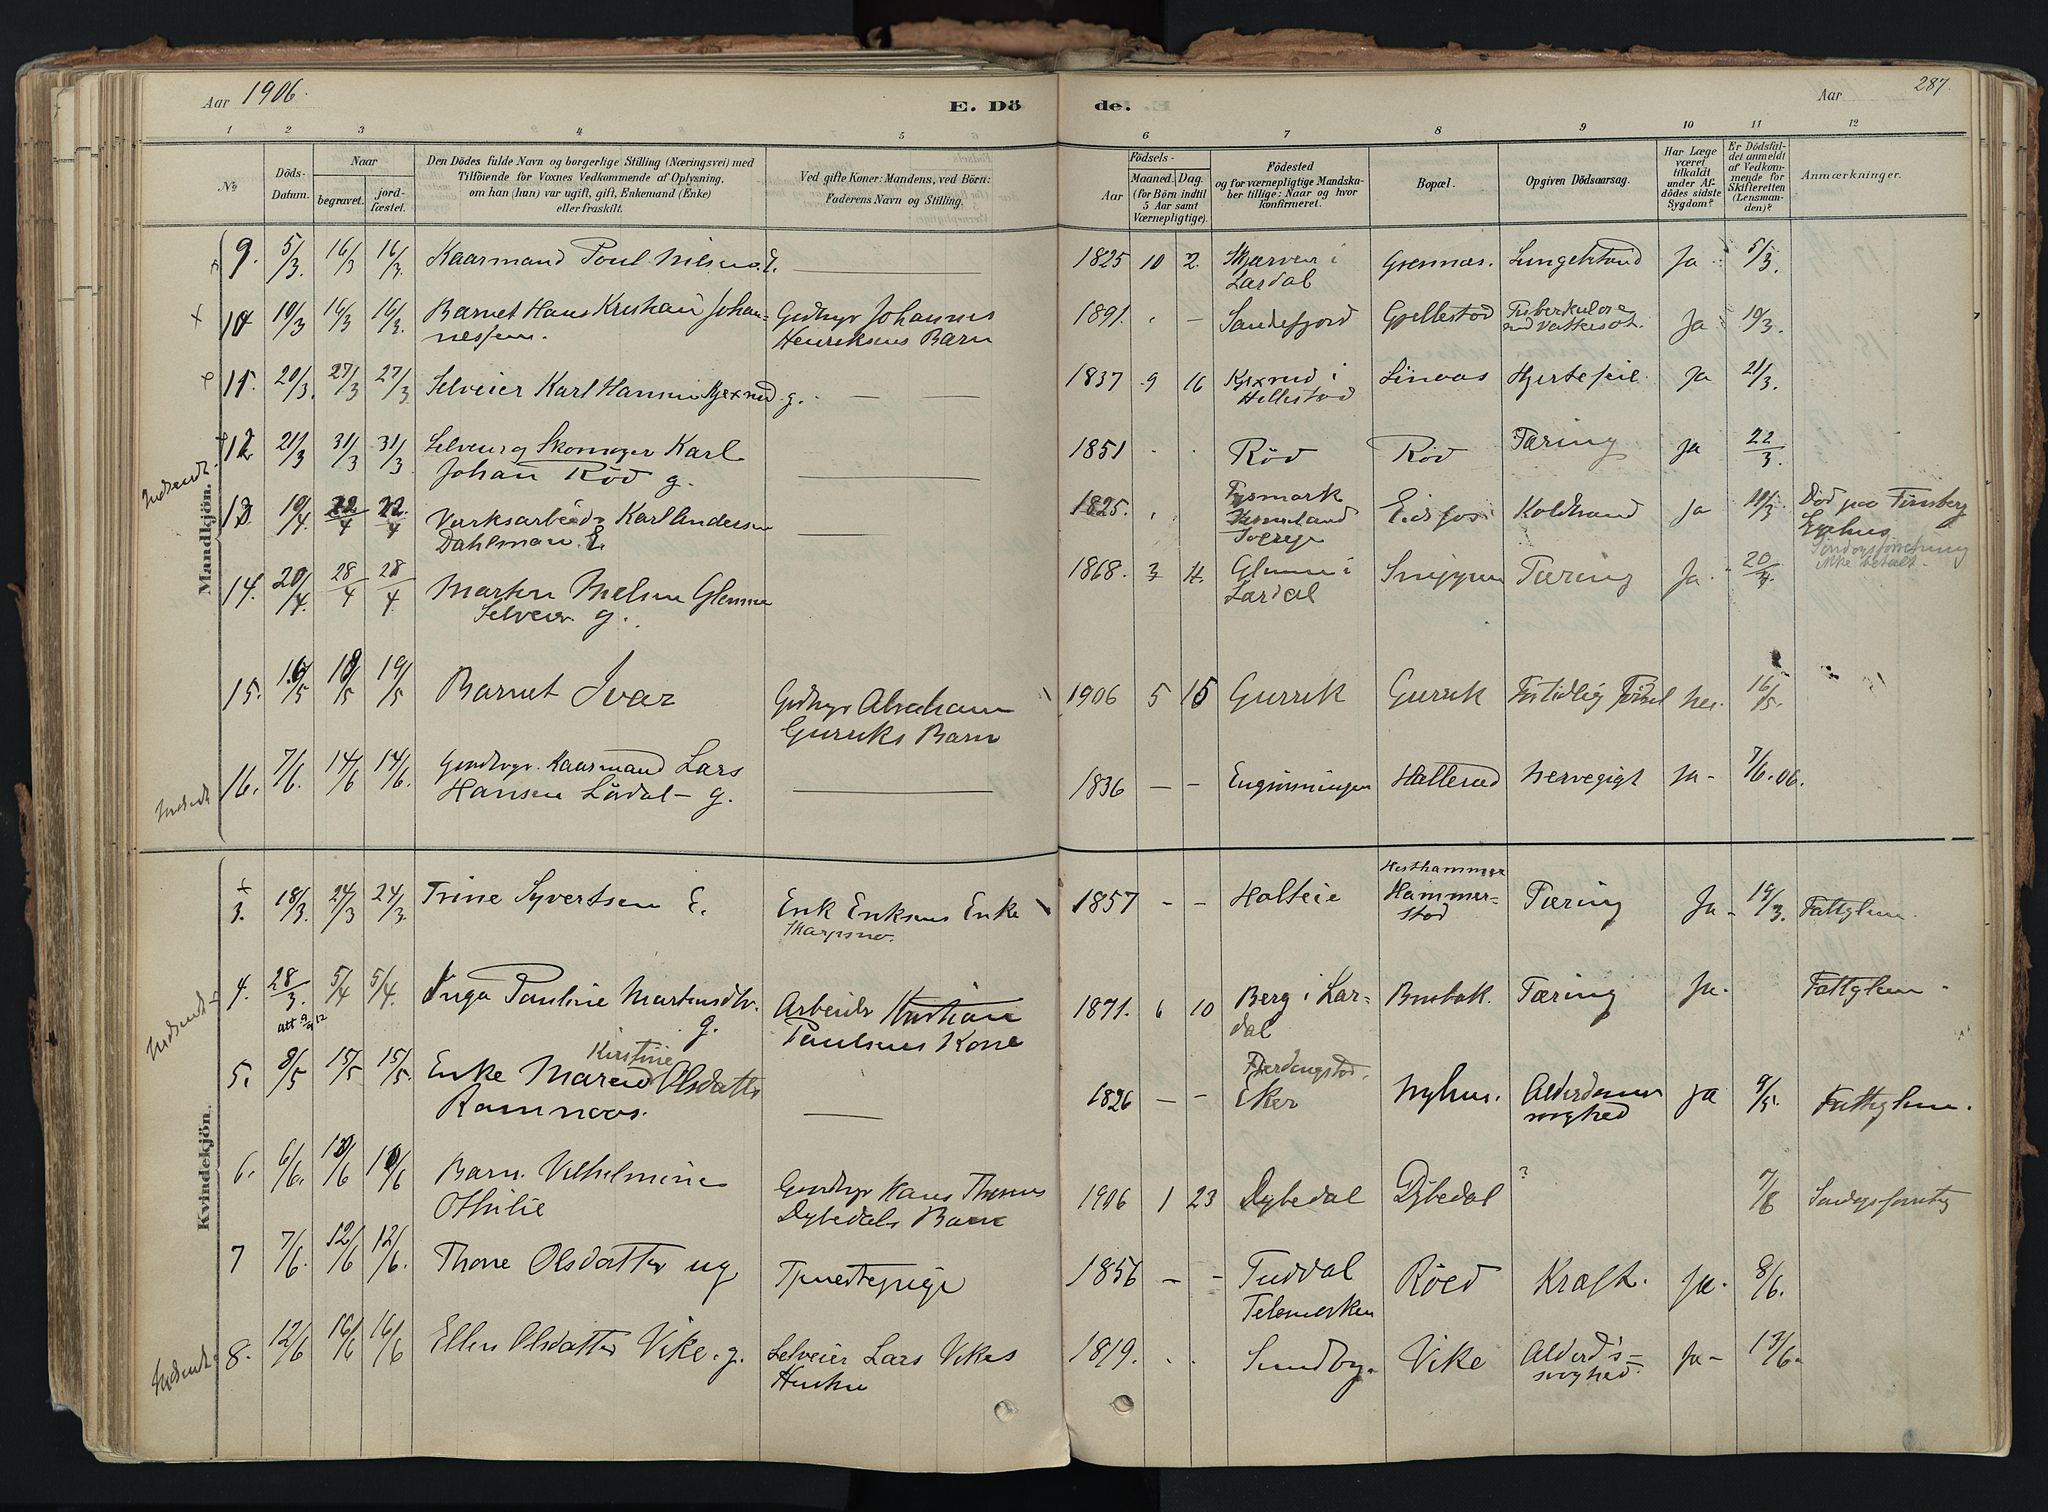 Aar 1906.
E. Dö
de.
Aar
287.
1 2 3 4 5 6 7 8 9 10 11 12
No
Döds-
Datum.
Naar
begravet.
jord-
fæstet.
Den Dödes fulde Navn og borgerlige Stilling (Næringsvei) med
Tilföiende for Voxnes Vedkommende af Oplysning,
om han (hun) var ugift, gift, Enkemand (Enke)
eller fraskilt.
Ved gifte Koner: Mandens, ved Börn:
Faderens Navn og Stilling.
Födsels-
Aar
Maaned. Dag.
(for Börn indtil
5 Aar samt
Værnepligtige).
Födested
og for værnepligtige Mandska-
ber tillige: Naar og hvor
konfirmeret.
Bopæl.
Opgiven Dödsaarsag.
Har Læge
været
tilkaldt
under Af-
dödes sidste
Sygdom?
Er Dödsfal-
det anmeldt
af Vedkom-
mende for
Skifteretten
(Lensman-
den)?
Anmærkninger.
Mandkjön.
9. 5/3. 16/3 16/3. Kaarmand Poul Nilsen E. 1825 10 2. Lardal Grennæs. Ja 5/3.
10 10/3 16/3 16/3. Barnet Hans Kristian Johan-
nessen. Gaardbr Johannes
Henriksens Barn 1891. Sandefjord Gjellestad Ja 10/3.
11. 20/3. 27/3 27/3 Selveier Karl Hansen Kjexrud g. 1837 9 16 Kjexrud i
Hillestad Linaas Hjertefeil. Ja 21/3.
12 21/3 31/3 31/3 Selveier og Skomager Karl
Johan Röd g. 1851 Röd Röd Tæring Ja 22/3.
Indsendt.
13 10/4 22/4 22/4 Værksarbeider Karl Andersen
Dahlman. E. 1825. Værmeland
Sverige Eidsfos Koldbrand Ja Död paa Tönsberg
Sygehus
ikke betalt.
14. 20/4. 28/4 28/4 Martin Nielsen Glenna
Selveier g. 1868. 3 4. Glenna i
Lardal Tæring Ja. 20/4.
15. 16/5 18/5 19/5 Barnet Ivar Gaardbr Abraham
Gurriks Barn 1906 5 15 Gurrik Gurrik Fortidlig Födsel Nei. 16/5.
Indsendt
16. 7/6. 14/6 14/6. Gaardbr. Kaarmand Lars
Hansen Lådal - g. 1836 Hallerud Nervegigt Ja - 7/6. 06.
Kvindekjön.
3. 18/3. 24/3 24/3. Trine Syvertsen E. Erik Eriksens Enke 1857 Holteie Hesthammer
Hammer-
stad Tæring Ja - 19/3. Fattiglem.
Indsendt
4. 28/3. 5/4 5/4. Inga Pauline Martinsdtr.
g. Arbeider Kristian
Paulsens Kone 1871. 6 10 Berg i Lar-
dal Tæring Ja. Fattiglem -
5. 8/5 15/5 15/5. Enke Maren Kirstine Olsdatter
Ramnaas. 1826 Eker Nyhus. Alderdoms-
svaghed Ja 9/5. Fattiglem.
6. 6/6. 10/6 10/6 Barn. Vilhelmine
Othilie Gaardbr Hans Thomas
Dybedals Barn 1906 1 23 Dybedal Dybedal ?
7 7/6. 12/6 12/6. Thone Olsdatter ug Tjenestepige 1856 Tuddal
Telemarken Röed Kræft. Ja. 8/6.
Indsendt
8. 12/6 16/6 16/6 Ellen Olsdatter Vike. g. Selveier Lars Vikes
Hustru 1819. Sundby Vike Alderd's-
svaghed. Ja - 13/6.